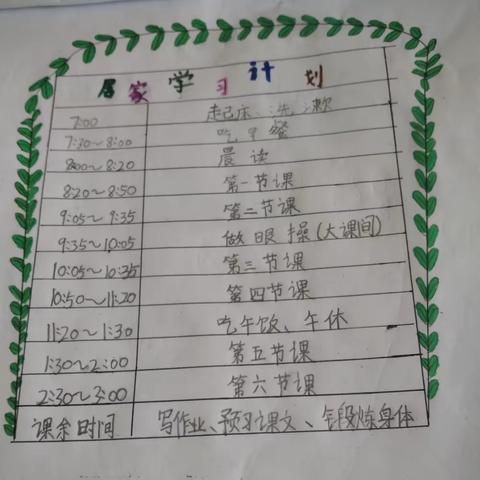 居家学习计划
7:00 起床、洗漱
7:30~8:00 吃早餐
8:00~8:20 晨读
8:20~8:50 第一节课
9:05~9:35 第二节课
9:35~10:05 做眼操(大课间)
10:05~10:35 第三节课
10:50~11:20 第四节课
11:20~1:30 吃午饭、午休
1:30~2:00 第五节课
2:30~3:00 第六节课
课余时间 写作业、预习课文、锻炼身体